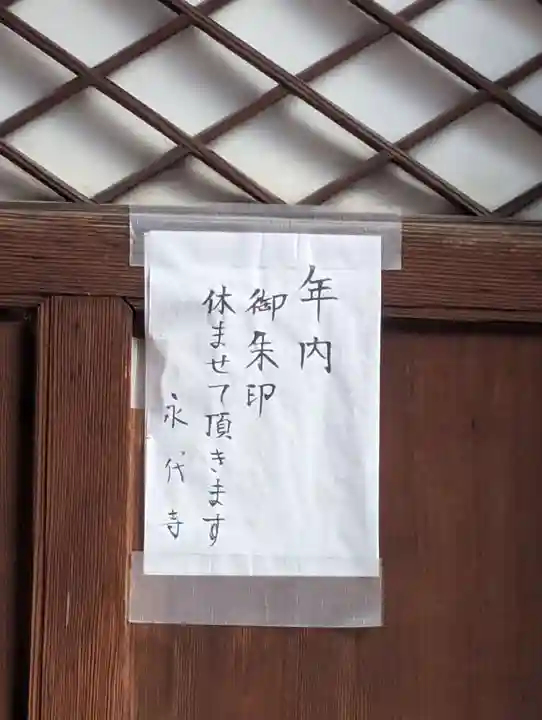 年内
御朱印
休ませて頂きます
永代寺